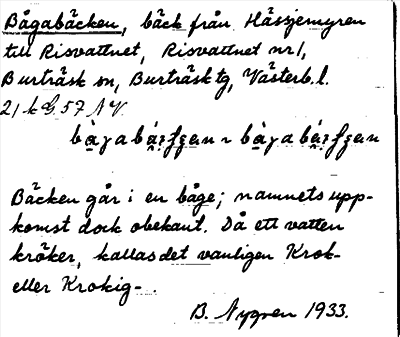 Bågabäcken, bäck från Hässjemyren
till Risvattnet, Risvattnet nr 1,
Burträsk sn, Burträsk tg, Västerb. l.
21 k G. 57 NV.
Bäcken går i en båge; namnets upp-
komst dock obekant. Då ett vatten
kröker, kallas det vanligen Krok-
eller Krokig- .
B. Nygren 1933.